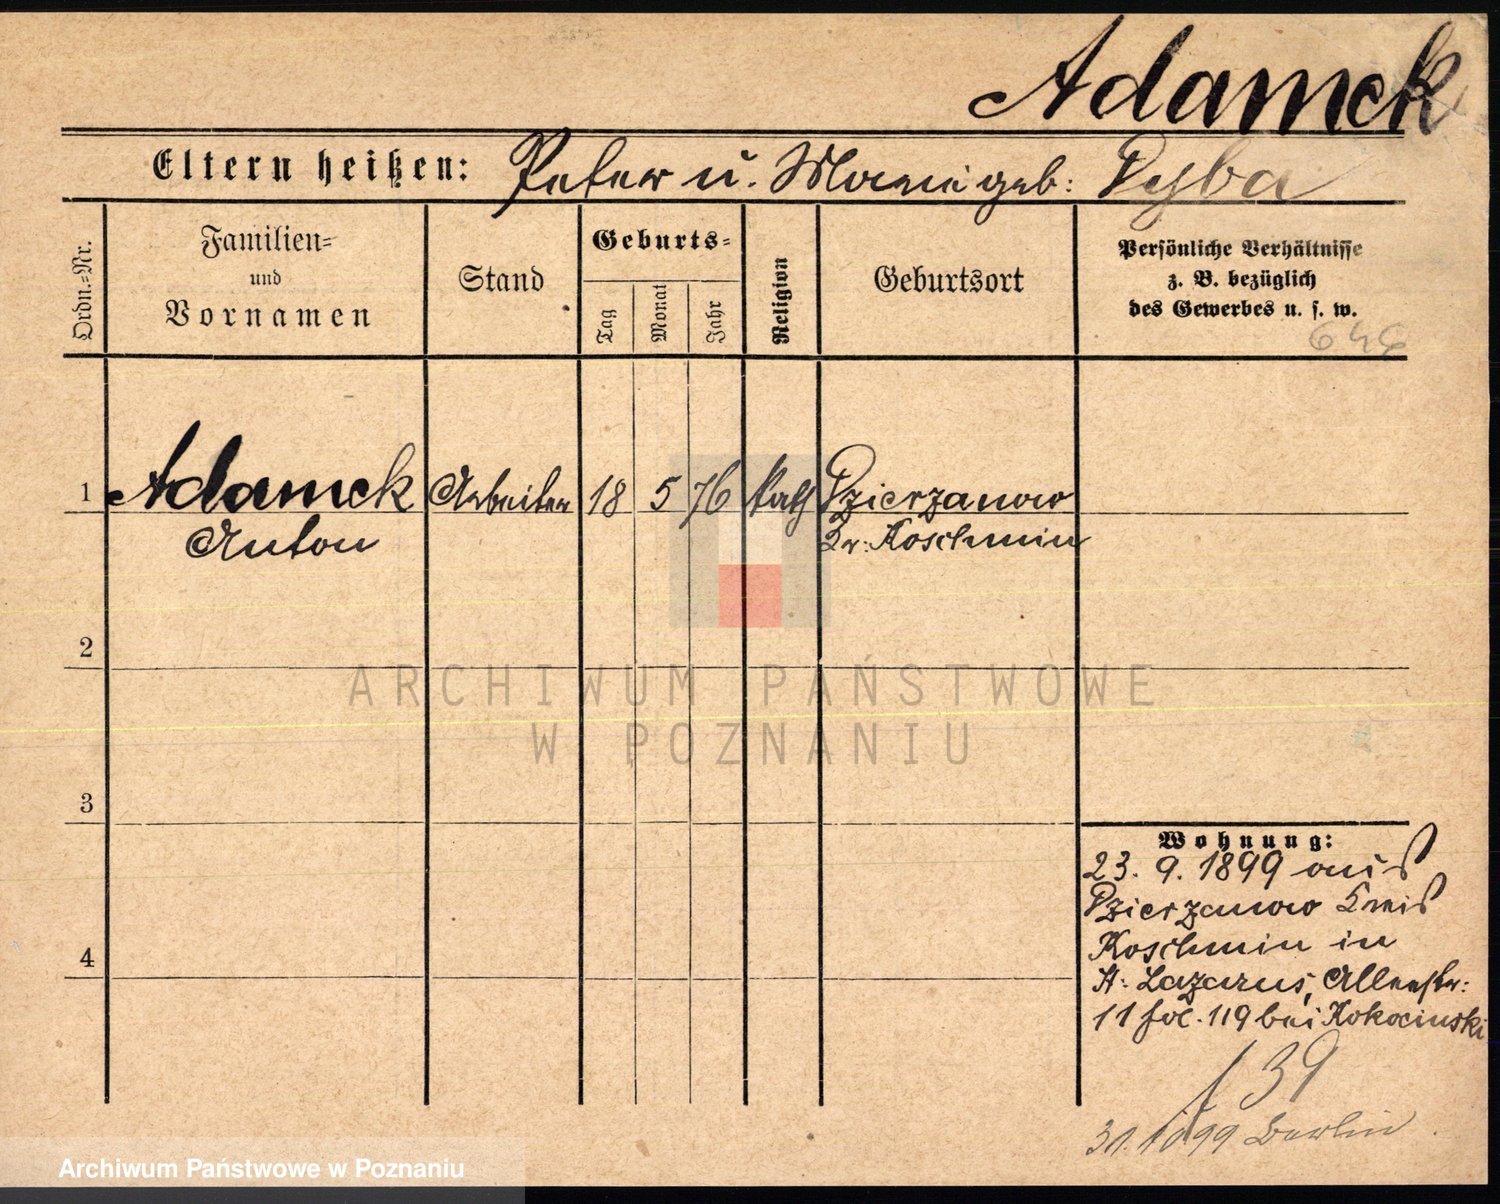 Adamek
Eltern heißen: Peter u. Marie geb: Pyba
Ordn.-Nr.
Familien-
und
Vornamen
Stand
Geburts-
Tag
Monat
Jahr
Religion
Geburtsort
Persönliche Verhältnisse
z. B. bezüglich
des Gewerbes u. s. w.
1 Adamek Arbeiter 18 5 76 kath Dzierzanow
Anton Kr: Koschmin
2
3
4
Wohnung:
23. 9. 1899 aus
Dzierzanow Kreis
Koschmin in
St: Lazarus, Alleestr:
11 fol. 119 bei Kokocinski
f 39
31. 10 99 Berlin
ARCHIWUM PAŃSTWOWE
W POZNANIU
Archiwum Państwowe w Poznaniu